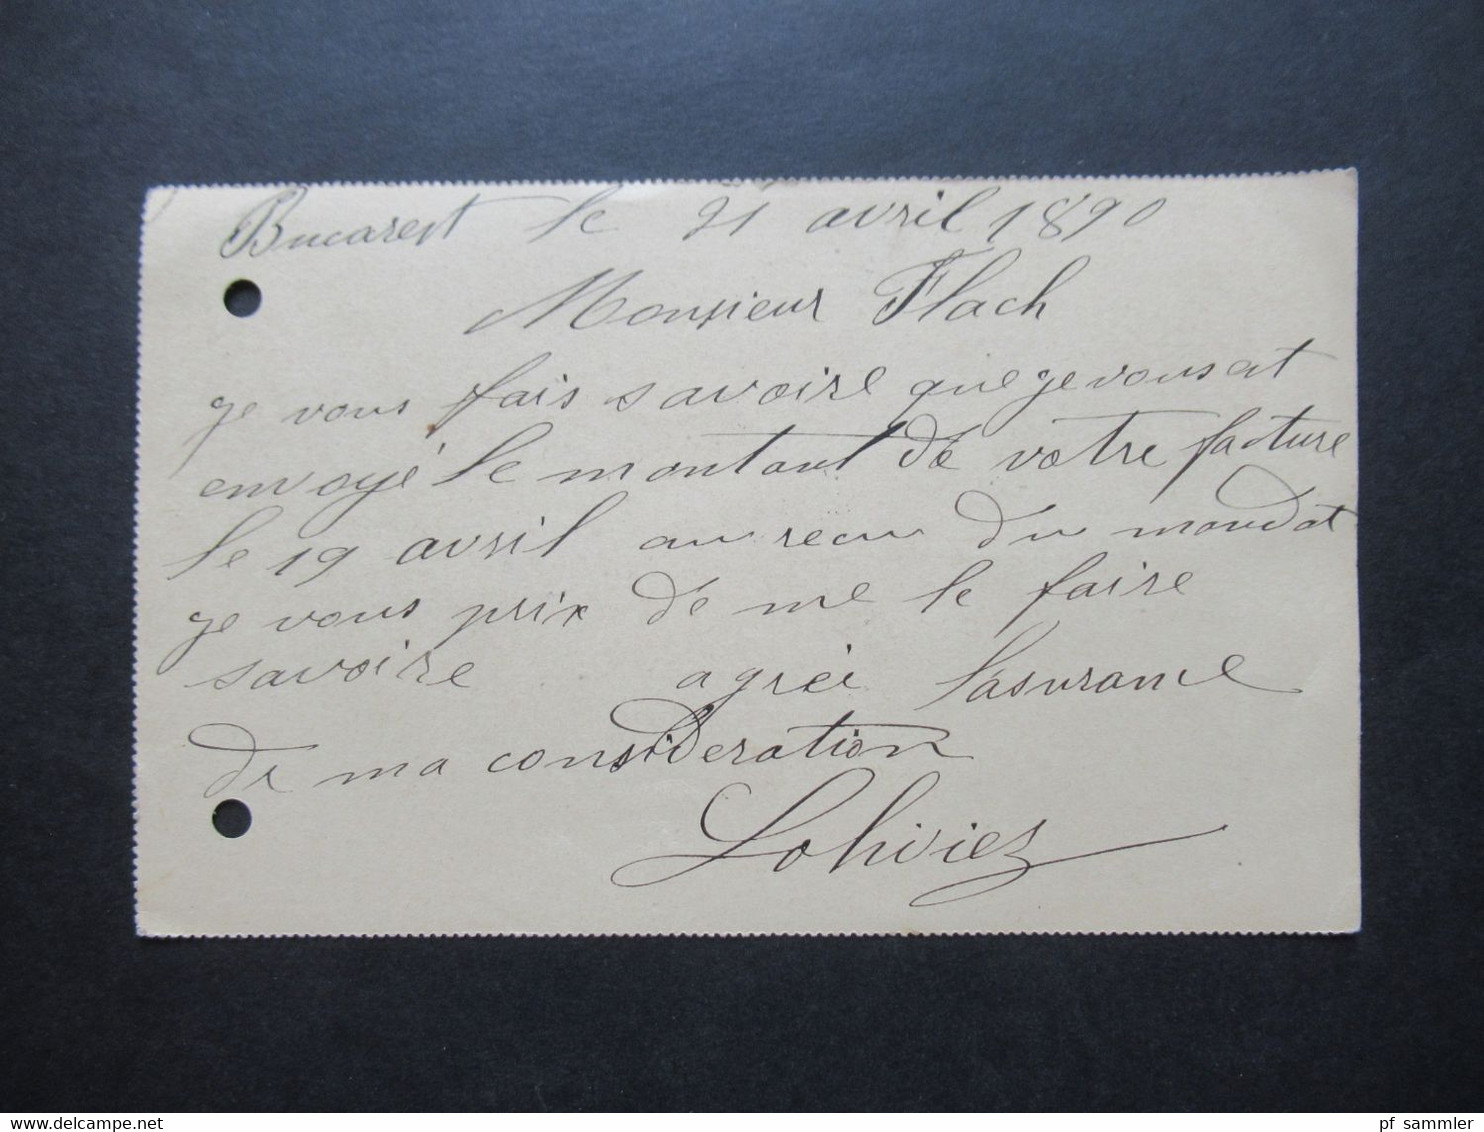 Bucarest le 21 avril 1890
Monsieur Flach
je vous fais savoire que je vous at
envoyé le montant de votre facture
le 19 avril au recu du mandat
je vous prix de me le faire
savoire agréi lasurance
de ma consideration
delcampe.net
pf_sammler